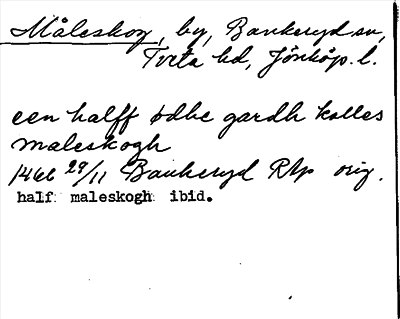 Måleskog, by, Bankeryd sn,
Tveta hd, Jönköp. l.
een halff ødhe gardh kalles
maleskogh
1466 29/11 Bankeryd RAp orig.
half maleskogh ibid.